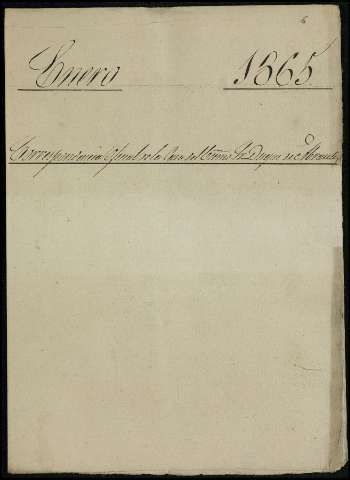 6
Enero 1865
Correspondencia Oficial de la Casa del Exmo Sr Duque de Abrantes